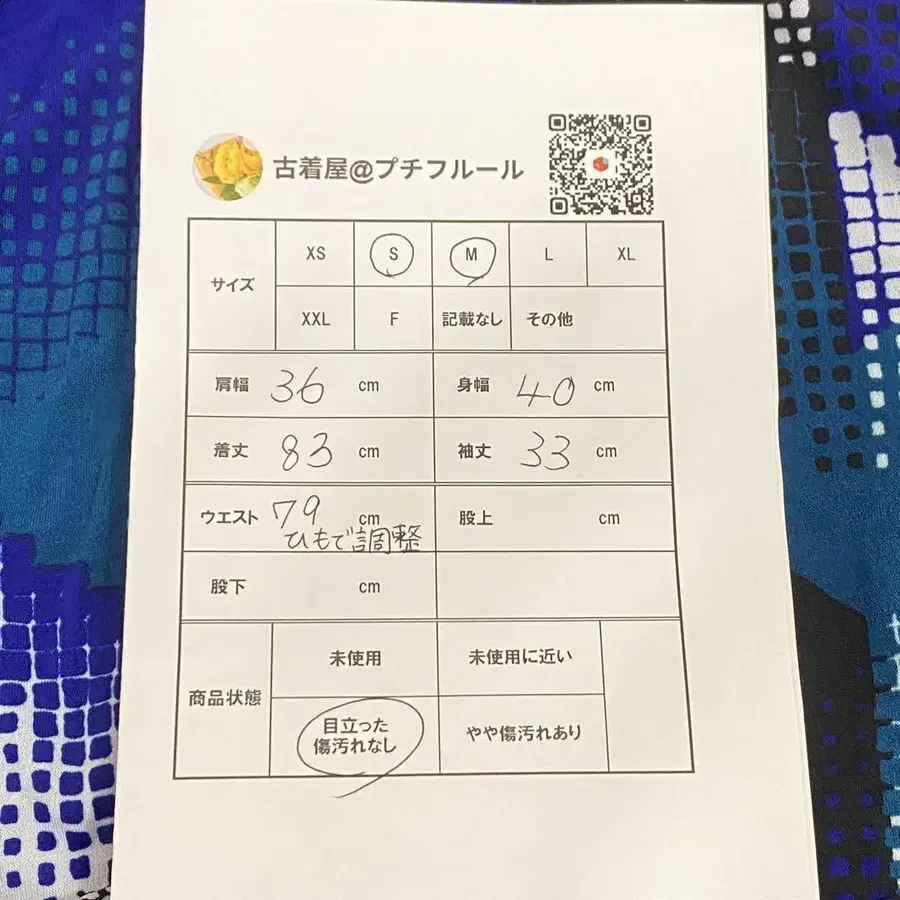 古着屋@プチフルール
サイズ XS S M L XL
XXL F 記載なし その他
肩幅 36 cm 身幅 40 cm
着丈 83 cm 袖丈 33 cm
ウエスト 79 cm 股上 cm
ひもで調整
股下 cm
商品状態 未使用 未使用に近い
目立った
傷汚れなし やや傷汚れあり